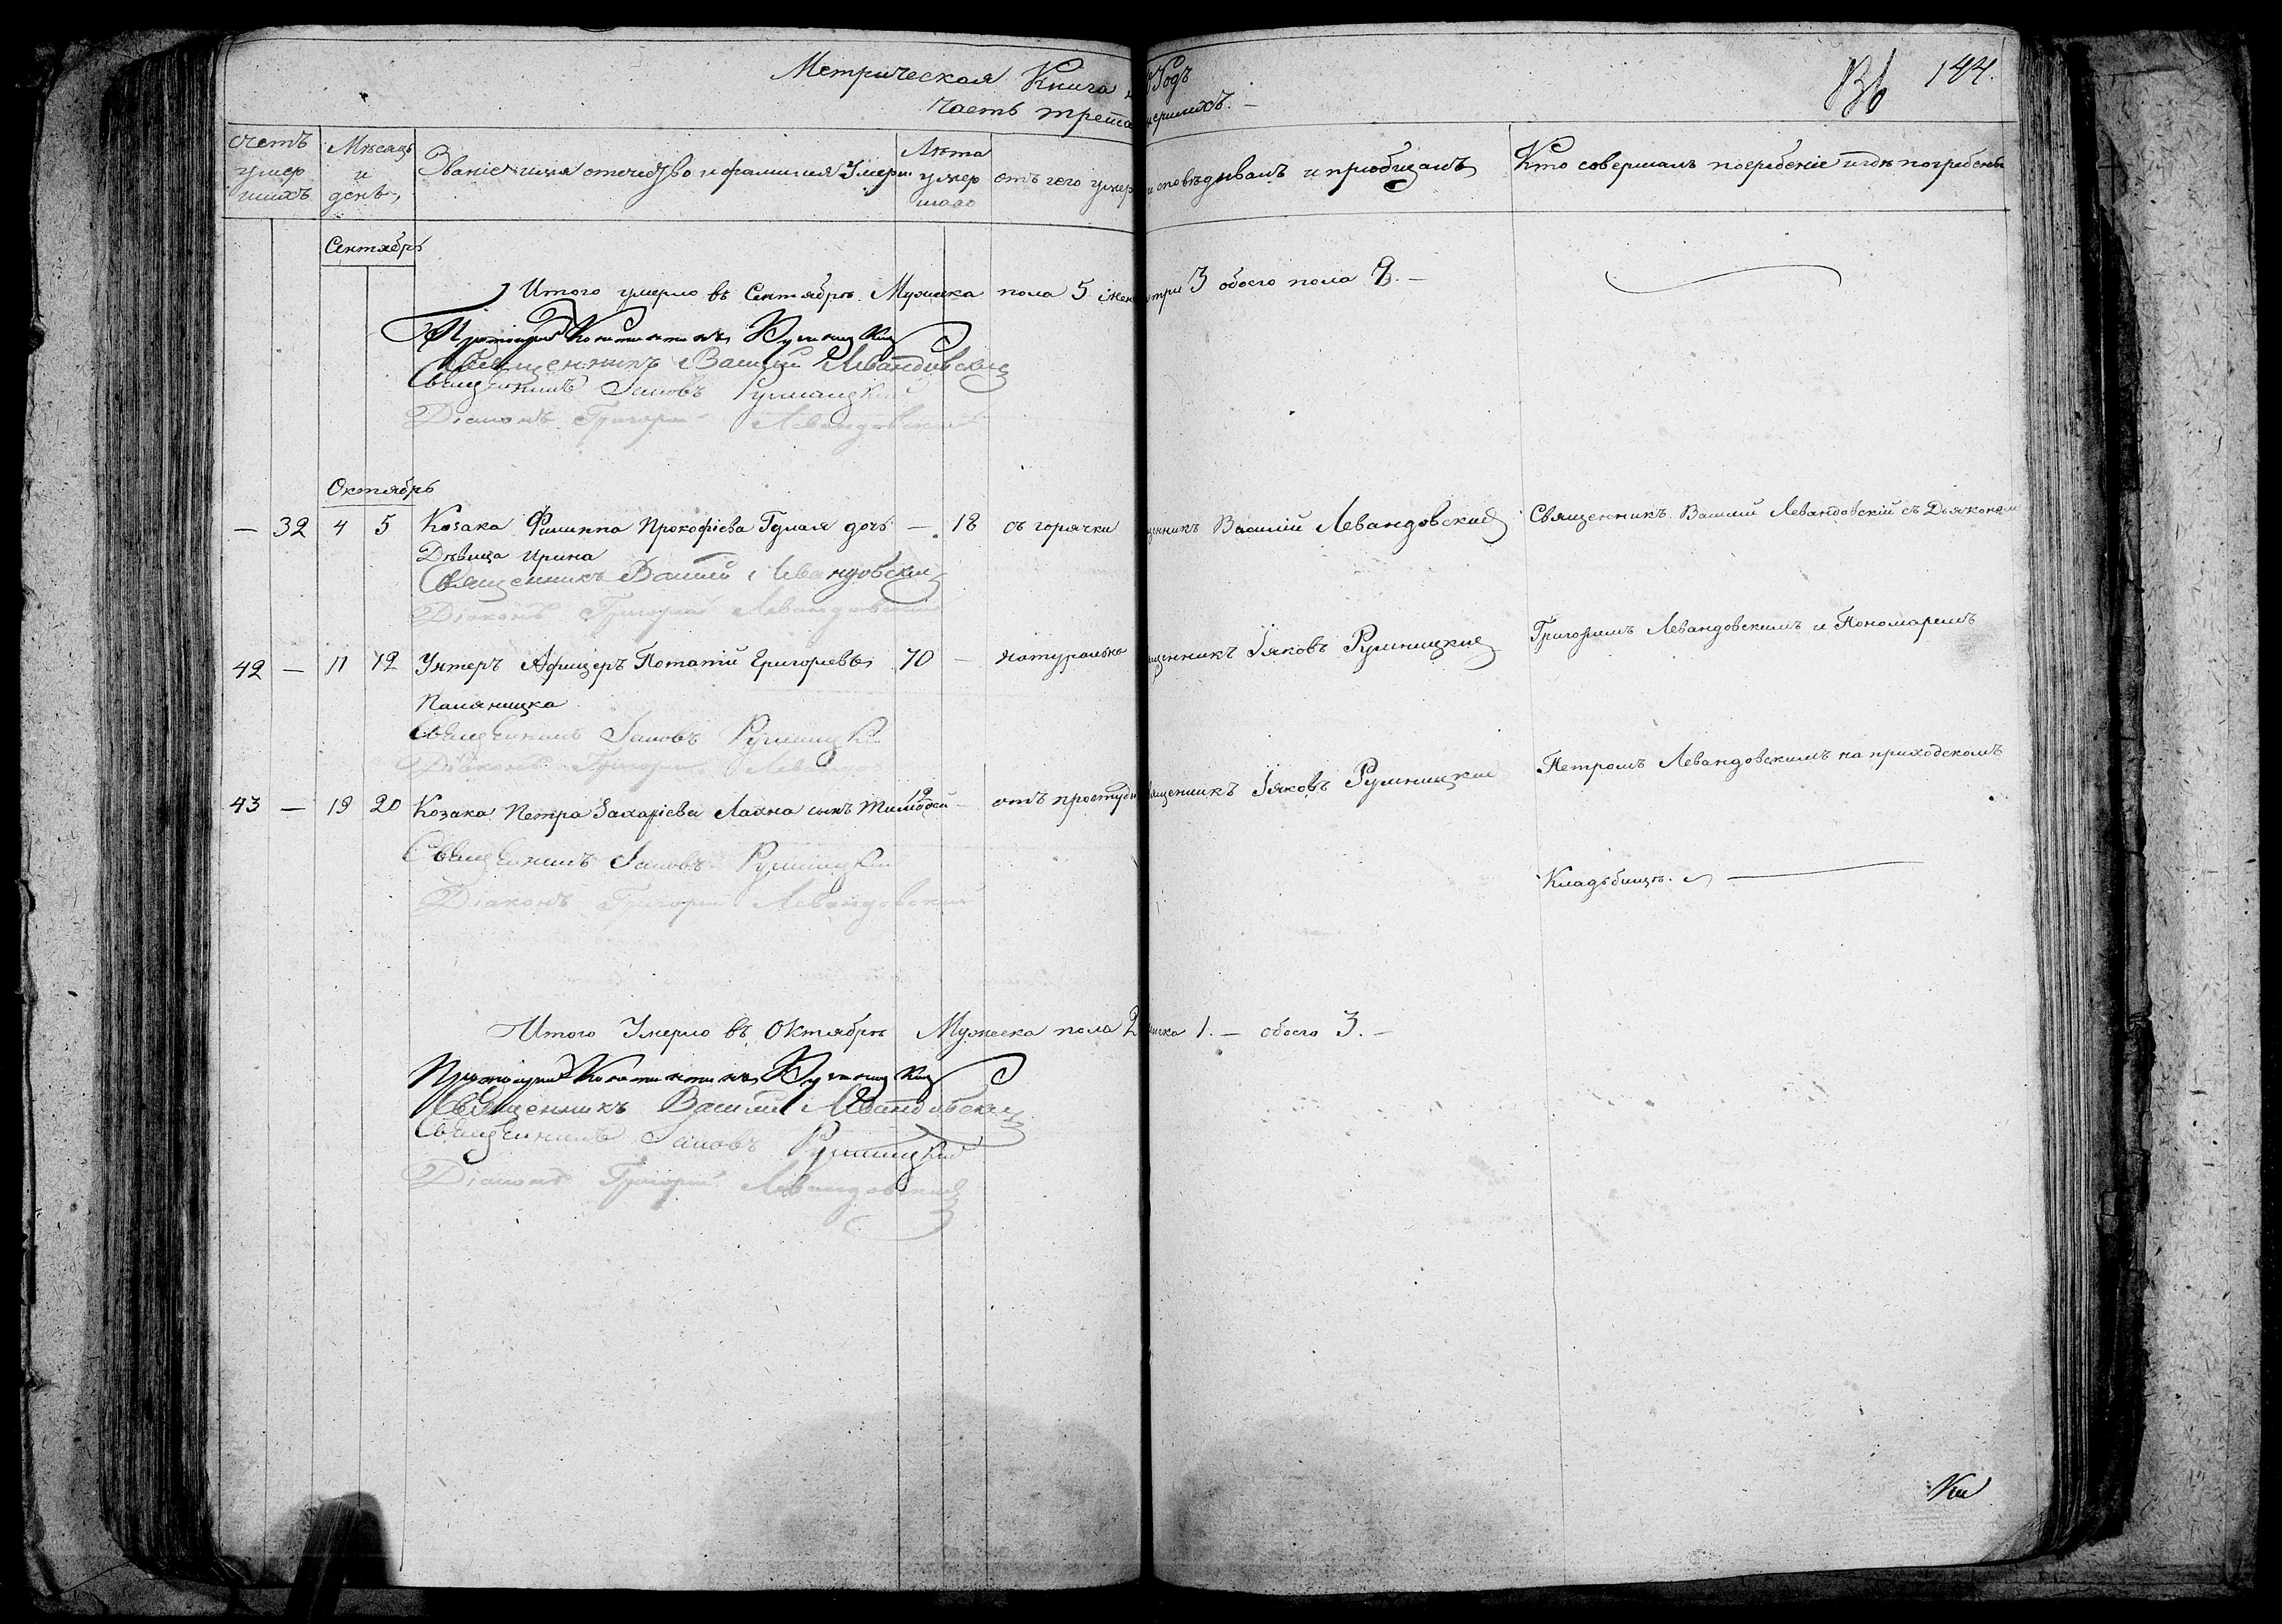 Метрическая Книга Годъ
часть трета мершихъ. 144.
счетъ умер шихъ
Мѣсацъ и день
Званіе имя отечество и фамилия Умерш
Лѣта умер шаго
отъ чего умер
исповѣдывалъ и приобщалъ
Кто совершалъ погребеніе и гдѣ погребены
Сентябрь
Итого умерло въ Сентябрѣ Мужеска пола 5 женска три 3 обоего пола 8. —
Протоіерей Константинъ
Священникъ Василій Левандовскій
Священникъ Іаковъ Румницкій
Діаконъ Григорій Левандовскій
Октябрь
— 32 4 5 Козака Филиппа Прокофіева Гумая дочь — 18 съ горячки щенникъ Василій Левандовскій Священникъ Василій Левандовскій съ Дьякономъ
Дѣвица Ирина
Священникъ Василій Левандовскій
Діаконъ Григорій Левандовскій
Григориемъ Левандовскимъ и Пономаремъ
42 — 11 12 Унтеръ Афицеръ Потапій Григорьевъ 70 — натурально щенникъ Іяковъ Румницкій
Паляницка
Священникъ Іаковъ Румницкій
Діаконъ Григорій Левандовскій
Петромъ Левандовскимъ на приходскомъ
43 — 19 20 Козака Петра Захаріева Лахна сынъ Тимофей 19 — отъ простуды щенникъ Іяковъ Румницкій
Священникъ Іаковъ Румницкій
Кладьбищѣ.
Діаконъ Григорій Левандовскій
Итого Умерло въ Октябрѣ Мужеска пола 2 женска 1. — обоего 3. —
Протоіерей Константинъ
Священникъ Василій Левандовскій
Священникъ Іаковъ Румницкій
Діаконъ Григорій Левандовскій